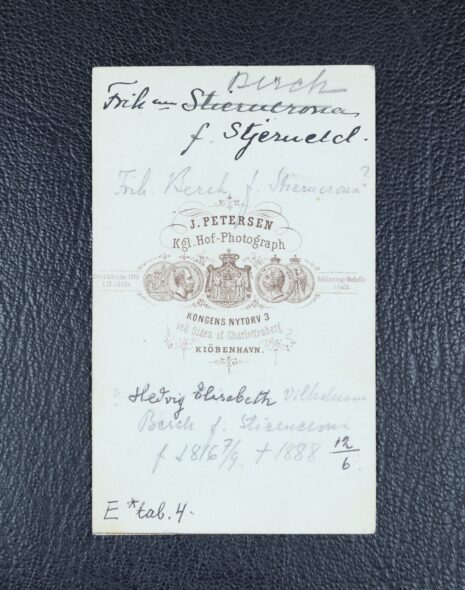 Berch
Frih Stiernerona
f. Stjerneld.
Frih. Berch f. Stiernerona?
J. PETERSEN
Kgl. Hof-Photograph
KONGENS NYTORV 3
ved Siden af Charlottenborg
KIÖBENHAVN.
? Hedvig Elisabeth Vilhelmina
Berch f. Stiernerona
f 1816 7/9 + 1888 12/6.
E * tab. 4.